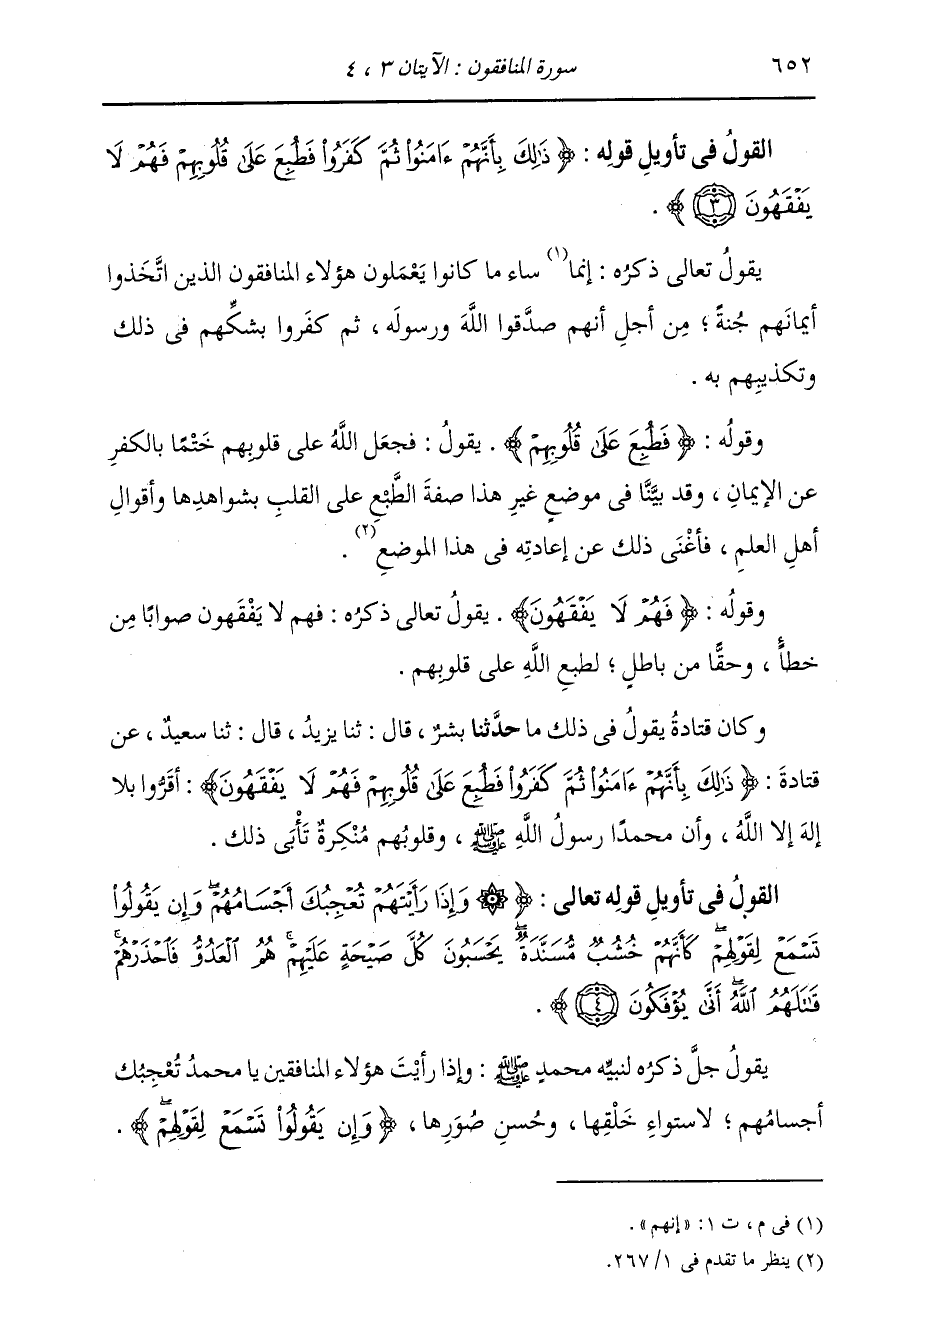 ٦٥٢ سورة المنافقون : الآيتان ٣ ، ٤
القولُ فى تأويلِ قولِه : ﴿ ذَٰلِكَ بِأَنَّهُمْ ءَامَنُوا۟ ثُمَّ كَفَرُوا۟ فَطُبِعَ عَلَىٰ قُلُوبِهِمْ فَهُمْ لَا
يَفْقَهُونَ ٣ ﴾ .
يقولُ تعالى ذكرُه : إنما(١) ساء ما كانوا يَعْمَلون هؤلاء المنافقون الذين اتَّخَذوا
أيمانَهم جُنةً ؛ مِن أجلِ أنهم صدَّقوا اللَّهَ ورسولَه ، ثم كفَروا بشكِّهم فى ذلك
وتكذيبِهم به .
وقولُه : ﴿ فَطُبِعَ عَلَىٰ قُلُوبِهِمْ ﴾ . يقولُ : فجعَل اللَّهُ على قلوبِهم خَتْمًا بالكفرِ
عن الإيمانِ ، وقد بيَّنَّا فى موضعٍ غيرِ هذا صفةَ الطَّبْعِ على القلبِ بشواهدِها وأقوالِ
أهلِ العلمِ ، فأغْنَى ذلك عن إعادتِه فى هذا الموضعِ(٢) .
وقولُه : ﴿ فَهُمْ لَا يَفْقَهُونَ ﴾ . يقولُ تعالى ذكرُه : فهم لا يَفْقَهون صوابًا مِن
خطأٍ ، وحقًّا من باطلٍ ؛ لطبعِ اللَّهِ على قلوبِهم .
وكان قتادةُ يقولُ فى ذلك ما حدَّثنا بشرٌ ، قال : ثنا يزيدُ ، قال : ثنا سعيدٌ ، عن
قتادةَ : ﴿ ذَٰلِكَ بِأَنَّهُمْ ءَامَنُوا۟ ثُمَّ كَفَرُوا۟ فَطُبِعَ عَلَىٰ قُلُوبِهِمْ فَهُمْ لَا يَفْقَهُونَ ﴾ : أقَرُّوا بلا
إلهَ إلا اللَّهُ ، وأن محمدًا رسولُ اللَّهِ ﷺ ، وقلوبُهم مُنْكِرةٌ تَأْبَى ذلك .
القولُ فى تأويلِ قولِه تعالى : ﴿ ۞ وَإِذَا رَأَيْتَهُمْ تُعْجِبُكَ أَجْسَامُهُمْ ۖ وَإِن يَقُولُوا۟
تَسْمَعْ لِقَوْلِهِمْ ۖ كَأَنَّهُمْ خُشُبٌ مُّسَنَّدَةٌ ۖ يَحْسَبُونَ كُلَّ صَيْحَةٍ عَلَيْهِمْ ۚ هُمُ ٱلْعَدُوُّ فَٱحْذَرْهُمْ ۚ
قَٰتَلَهُمُ ٱللَّهُ ۖ أَنَّىٰ يُؤْفَكُونَ ٤ ﴾ .
يقولُ جلَّ ذكرُه لنبيِّه محمدٍ ﷺ : وإذا رأيْتَ هؤلاء المنافقين يا محمدُ تُعْجِبُك
أجسامُهم ؛ لاستواءِ خَلْقِها ، وحُسنِ صُوَرِها ، ﴿ وَإِن يَقُولُوا۟ تَسْمَعْ لِقَوْلِهِمْ ۖ ﴾ .
(١) فى م ، ت ١ : « إنهم » .
(٢) ينظر ما تقدم فى ١/ ٢٦٧.